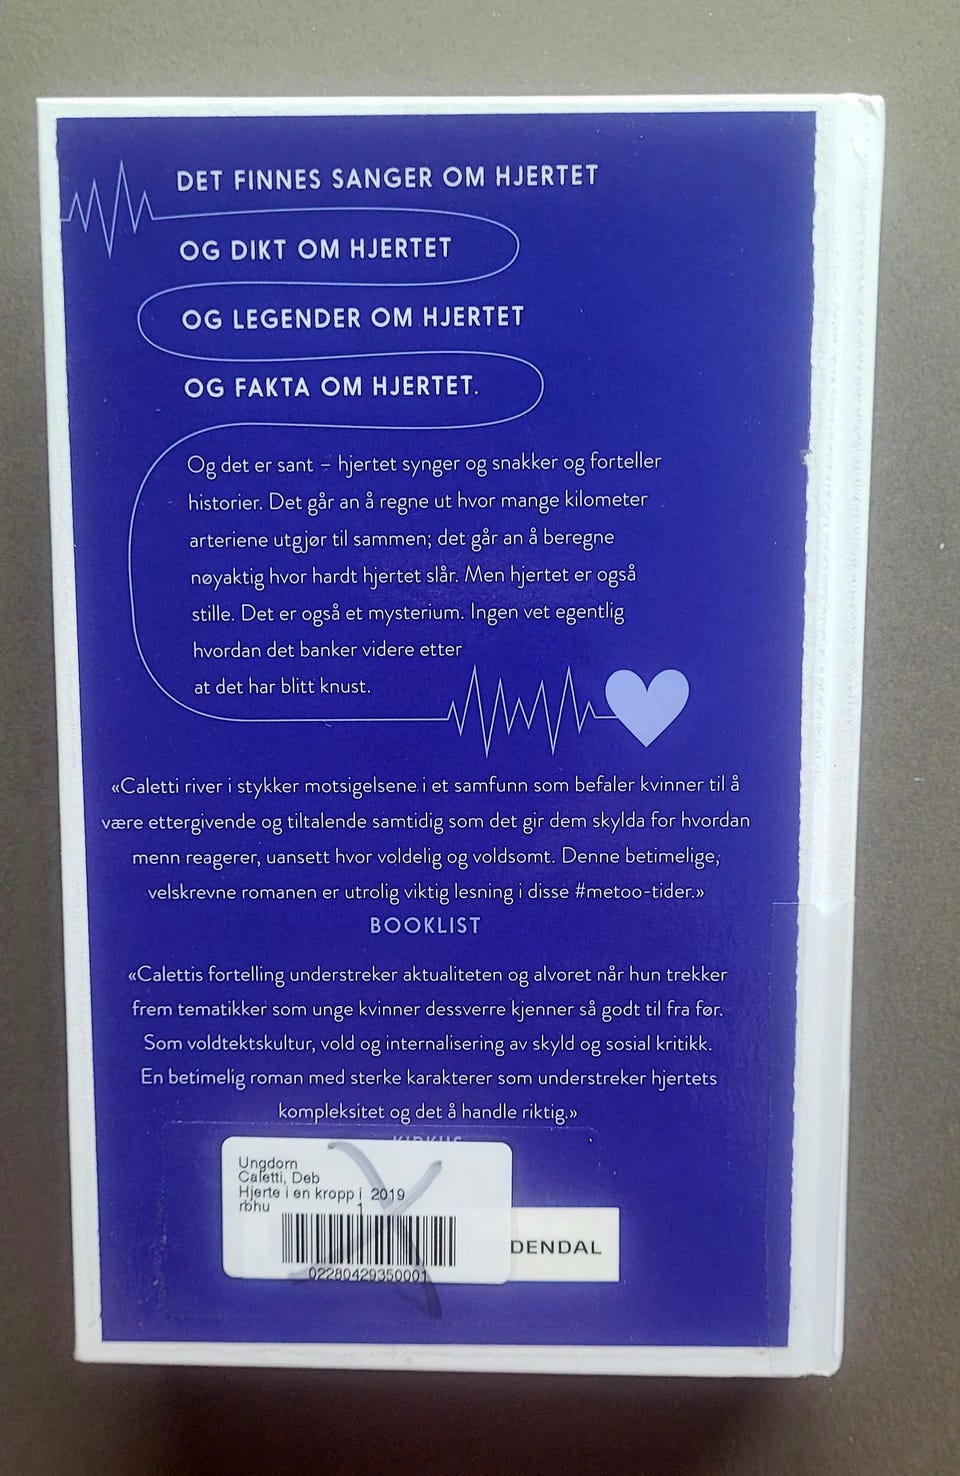 DET FINNES SANGER OM HJERTET
OG DIKT OM HJERTET
OG LEGENDER OM HJERTET
OG FAKTA OM HJERTET.
Og det er sant – hjertet synger og snakker og forteller
historier. Det går an å regne ut hvor mange kilometer
arteriene utgjør til sammen; det går an å beregne
nøyaktig hvor hardt hjertet slår. Men hjertet er også
stille. Det er også et mysterium. Ingen vet egentlig
hvordan det banker videre etter
at det har blitt knust.
«Caletti river i stykker motsigelsene i et samfunn som befaler kvinner til å
være ettergivende og tiltalende samtidig som det gir dem skylda for hvordan
menn reagerer, uansett hvor voldelig og voldsomt. Denne betimelige,
velskrevne romanen er utrolig viktig lesning i disse #metoo-tider.»
BOOKLIST
«Calettis fortelling understreker aktualiteten og alvoret når hun trekker
frem tematikker som unge kvinner dessverre kjenner så godt til fra før.
Som voldtektskultur, vold og internalisering av skyld og sosial kritikk.
En betimelig roman med sterke karakterer som understreker hjertets
kompleksitet og det å handle riktig.»
Ungdom
Caletti, Deb
Hjerte i en kropp i 2019
rbhu 1
02280429350001
DENDAL